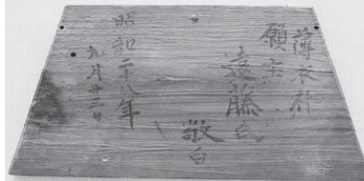 薄衣村
願主
遠藤氏
敬白
昭和二十八年
九月廿三日